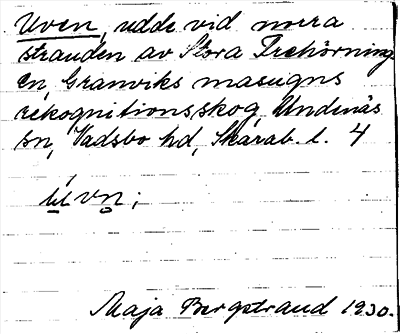 Uven, udde vid norra
stranden av Stora Trehörning
en, Granviks masugns
rekognitionsskog, Undenäs
sn, Vadsbo hd, Skarab. l. 4
Maja Bergstrand 1930.